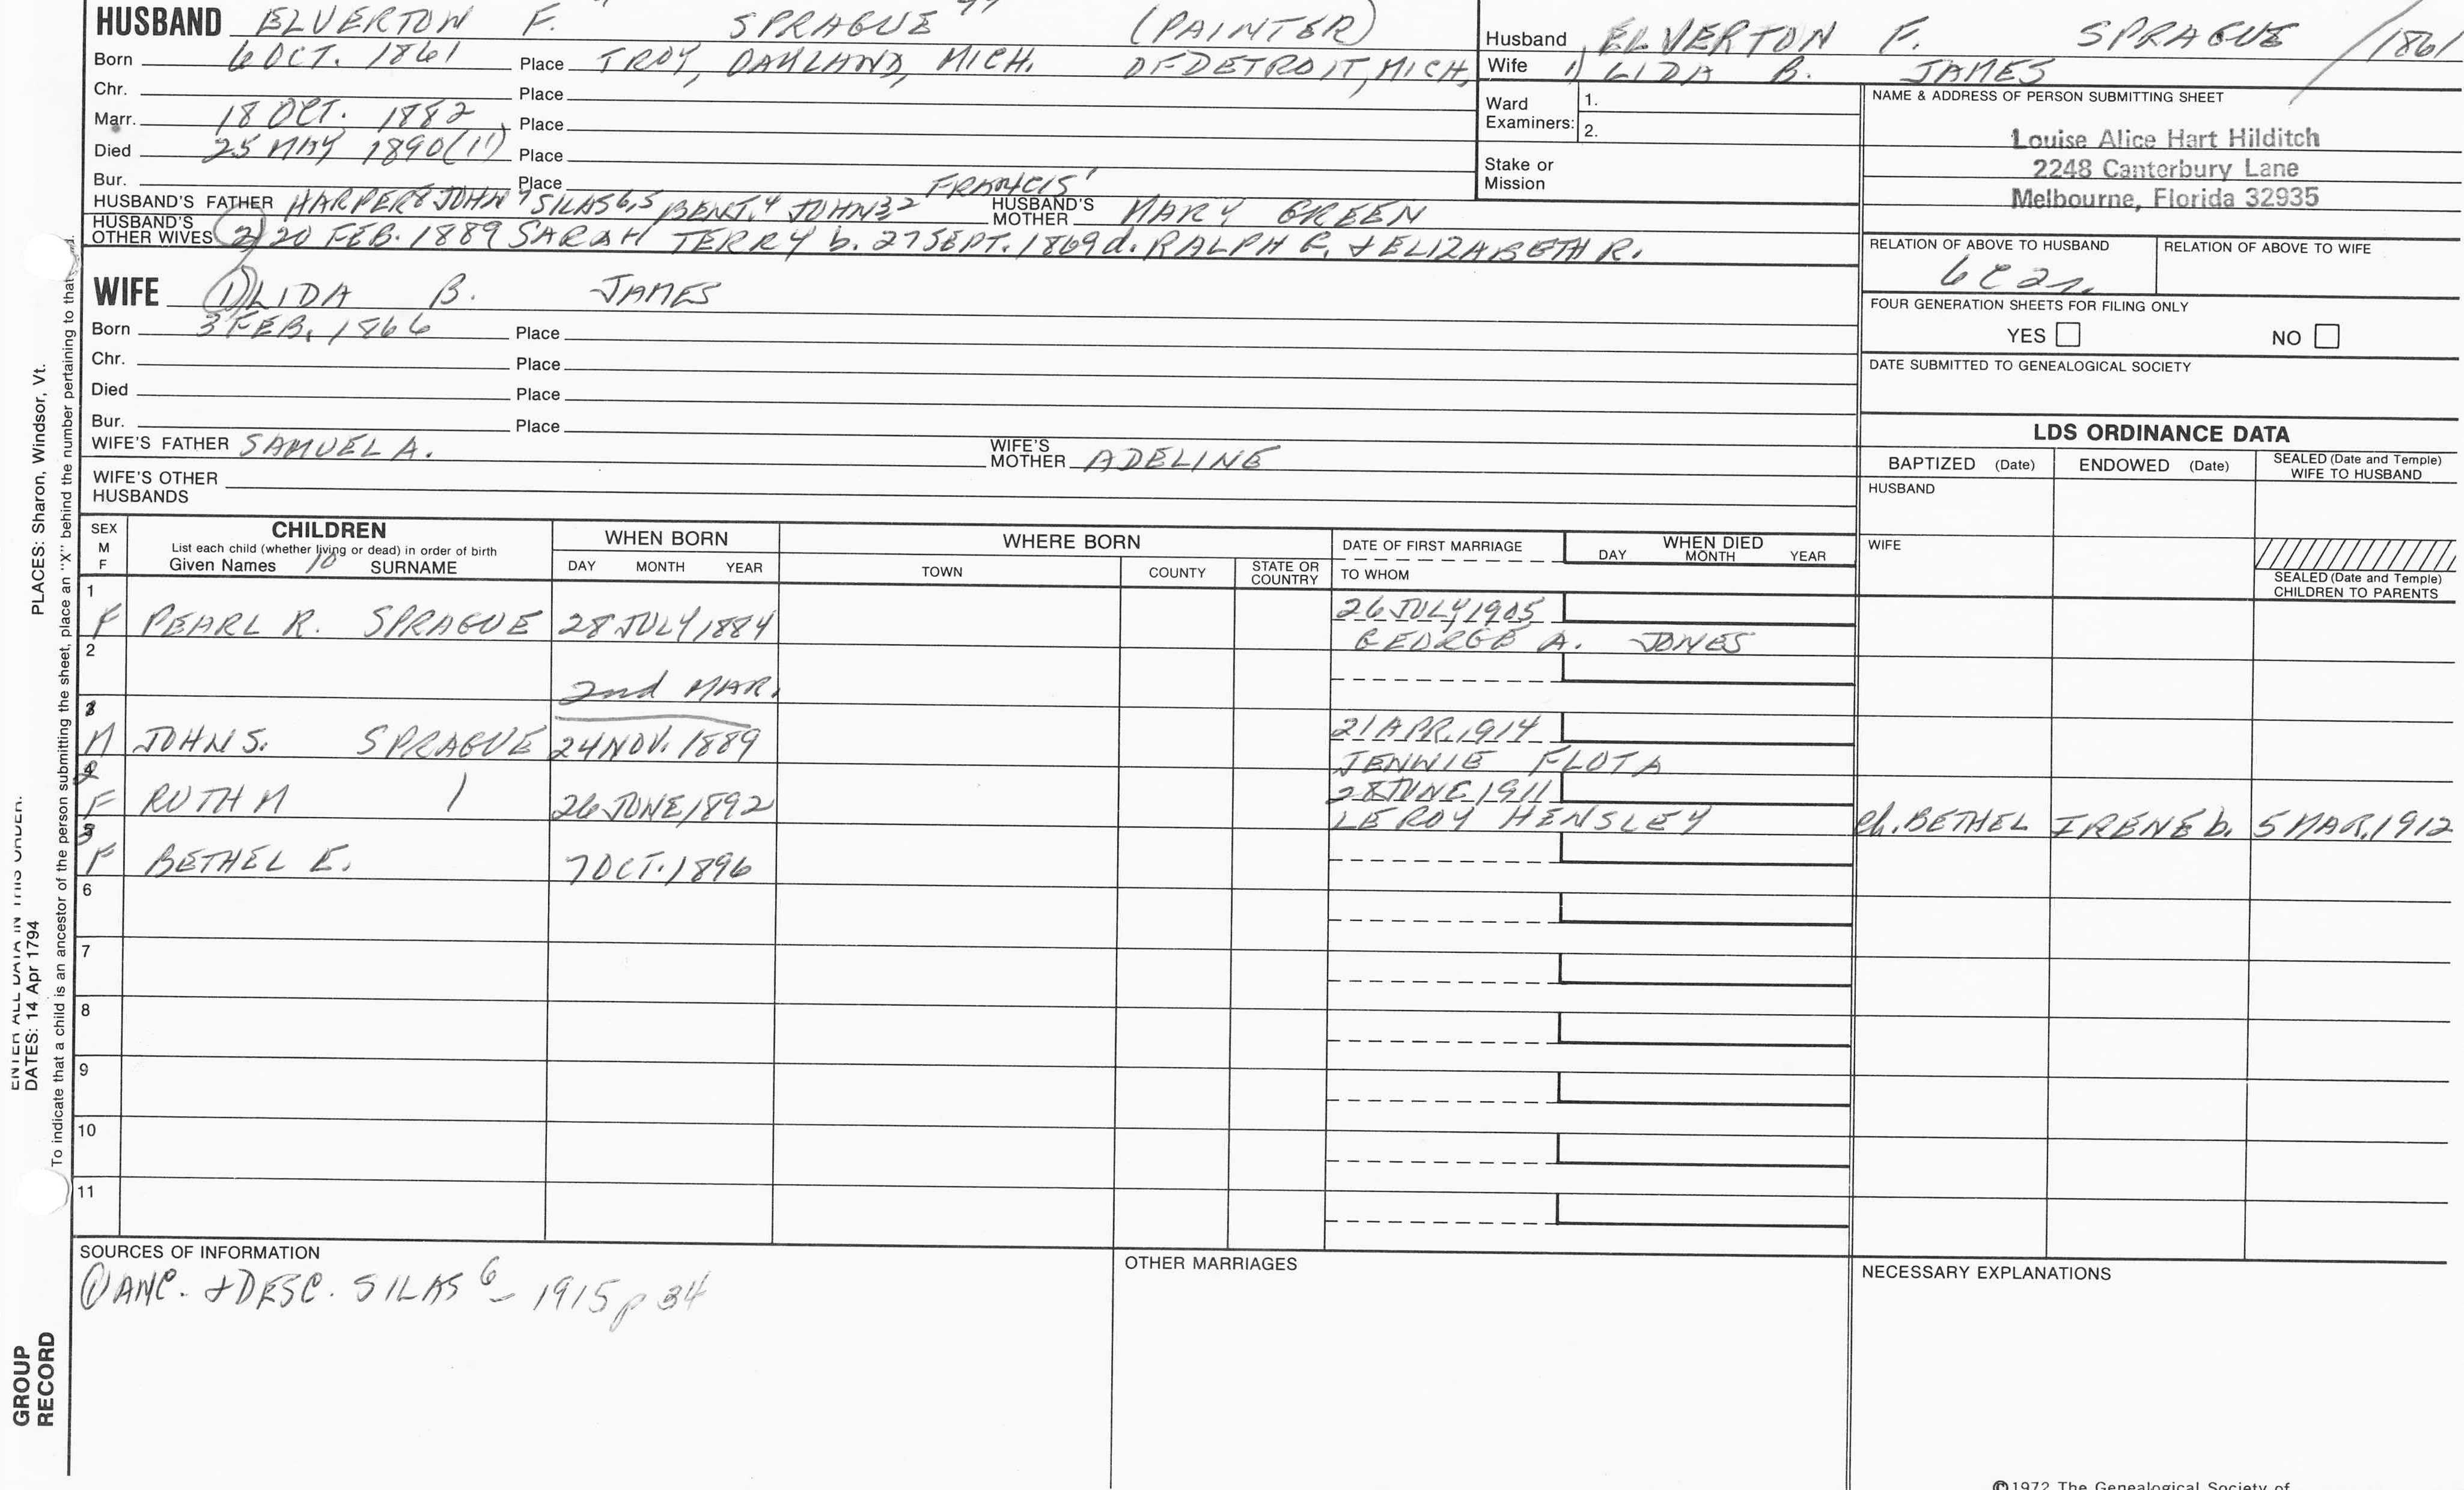 HUSBAND ELVERTON F. SPRAGUE (PAINTER)
Born 6 OCT. 1861 Place TROY, OAKLAND, MICH. OF DETROIT, MICH.
Chr. Place
Marr. 18 OCT. 1882 Place
Died 25 MAY 1890(1) Place
Bur. Place
HUSBAND'S FATHER HARPER8 JOHN7 SILAS6,5 BENJ.4 JOHN3,2 FRANCIS1 HUSBAND'S MOTHER MARY GREEN
HUSBAND'S OTHER WIVES (2) 20 FEB. 1889 SARAH TERRY b. 27 SEPT. 1869 d. RALPH G. + ELIZABETH R.
WIFE (1) LIDA B. JAMES
Born 3 FEB. 1866 Place
Chr. Place
Died Place
Bur. Place
WIFE'S FATHER SAMUEL A. WIFE'S MOTHER ADELINE
WIFE'S OTHER HUSBANDS
Husband ELVERTON F. SPRAGUE / 1861
Wife 1) LIDA B. JAMES
Ward Examiners: 1.
2.
Stake or Mission
NAME & ADDRESS OF PERSON SUBMITTING SHEET
Louise Alice Hart Hilditch
2248 Canterbury Lane
Melbourne, Florida 32935
RELATION OF ABOVE TO HUSBAND RELATION OF ABOVE TO WIFE
6C2r.
FOUR GENERATION SHEETS FOR FILING ONLY
YES NO
DATE SUBMITTED TO GENEALOGICAL SOCIETY
LDS ORDINANCE DATA
BAPTIZED (Date) ENDOWED (Date) SEALED (Date and Temple) WIFE TO HUSBAND
HUSBAND
WIFE
SEALED (Date and Temple) CHILDREN TO PARENTS
SEX M F
CHILDREN
List each child (whether living or dead) in order of birth
Given Names 10 SURNAME
WHEN BORN
DAY MONTH YEAR
WHERE BORN
TOWN COUNTY STATE OR COUNTRY
DATE OF FIRST MARRIAGE
TO WHOM
WHEN DIED
DAY MONTH YEAR
1
F PEARL R. SPRAGUE 28 JULY 1884 26 JULY 1905
GEORGE A. JONES
2
2nd MAR.
1
M JOHN S. SPRAGUE 24 NOV. 1889 21 APR. 1914
JENNIE FLOTA
2
F RUTH M 26 JUNE 1892 28 JUNE 1911
LEROY HENSLEY ch. BETHEL IRENE b. 5 MAR. 1912
3
F BETHEL E. 7 OCT. 1896
6
7
8
9
10
11
SOURCES OF INFORMATION
(1) ANC. + DESC. SILAS6 - 1915 p 34
OTHER MARRIAGES
NECESSARY EXPLANATIONS
©1972 The Genealogical Society of
PLACES: Sharon, Windsor, Vt.
ENTER ALL DATA IN THIS ORDER:
DATES: 14 Apr 1794
To indicate that a child is an ancestor of the person submitting the sheet, place an "X" behind the number pertaining to that
GROUP RECORD